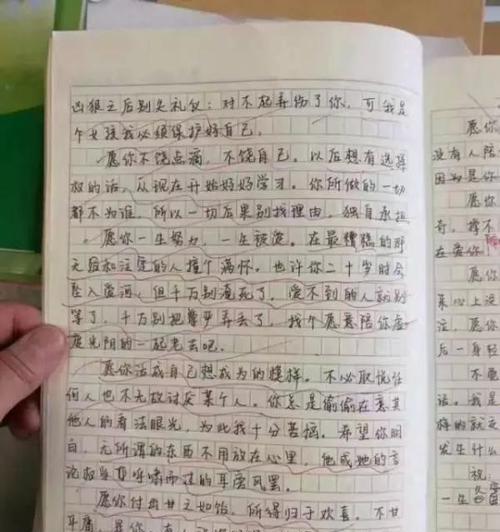 凶狠之后别忘礼仪：对不起弄伤了你，可我是
个女孩我必须保护好自己。
愿你不饶点滴，不饶自己。以后想有选择
权的话，从现在开始好好学习。你所做的一切
都不为谁，所以一切后果别找理由，独自承担
愿你一生努力，一生被爱。在最糟糕的那
天后和注定的人撞个满怀。也许你二十岁时会
坠入爱河，但千万别淹死了，爱不到的人就别
等了，千万别把尊严弄丢了，找个愿意陪你虚
度光阴的一起老去吧。
愿你活成自己想成为的模样。不必取悦任
何人也不无故讨厌某个人。你总是偷偷在意其
他人的看法眼光，为此我十分苦恼。希望你明
白，无所谓的东西不用放在心里，他或她的言
论都当耳旁风罢。
愿你付出甘之如饴，所得归于欢喜。不甘
愿你
没有人陪
因为是你
愿你
奇，撑不
在爱你
愿你
来心上
注，愿你
后一身轻
不要
话。我是
样的就
发生什么
祝
一生